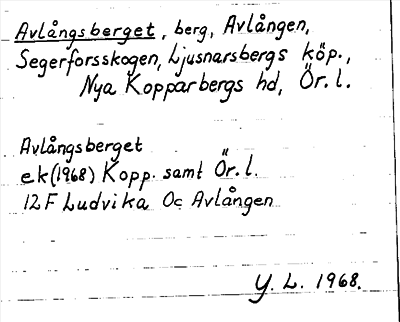 Avlångsberget, berg, Avlången,
Segerforsskogen, Ljusnarsbergs köp.,
Nya Kopparbergs hd, Ör. l.
Avlångsberget
ek (1968) Kopp. samt Ör. l.
12 F Ludvika Oc Avlången
Y. L. 1968.